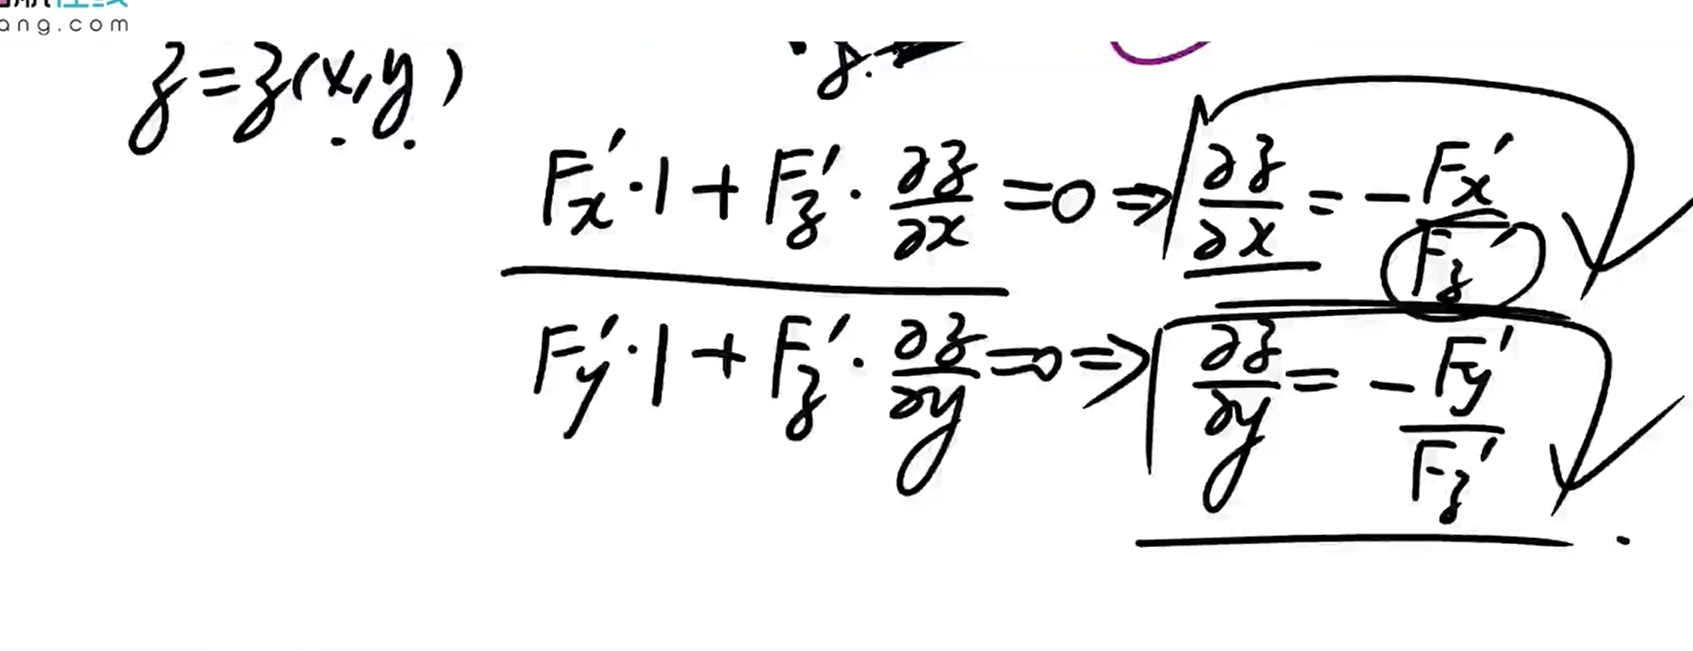 ang.com
z=z(x,y)
F'x·1+F'z·∂z/∂x=0⇒∂z/∂x=-F'x/F'z
F'y·1+F'z·∂z/∂y=0⇒∂z/∂y=-F'y/F'z